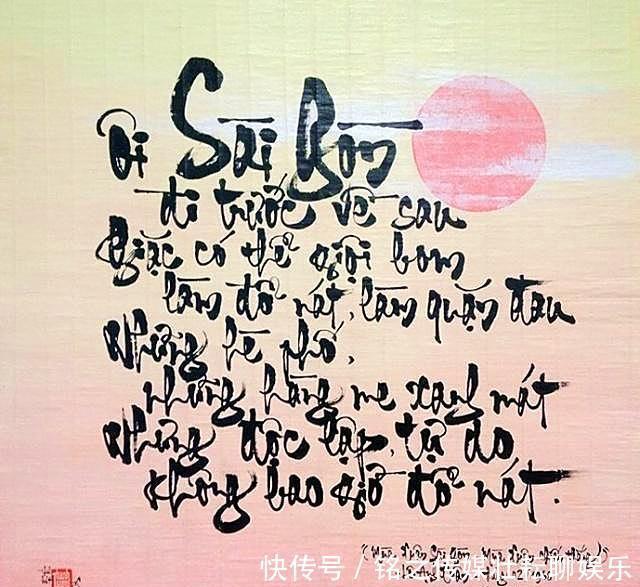 Ôi Sài Gòn
đi trước về sau
Giặc có thể giội bom
làm đổ nát, làm quặn đau
Những hè phố,
những hàng me xanh mát
Nhưng độc lập, tự do
không bao giờ đổ nát.
(Mùa xuân Sài Gòn - Mùa xuân
快传号 / 铭之传媒壮耘聊娱乐